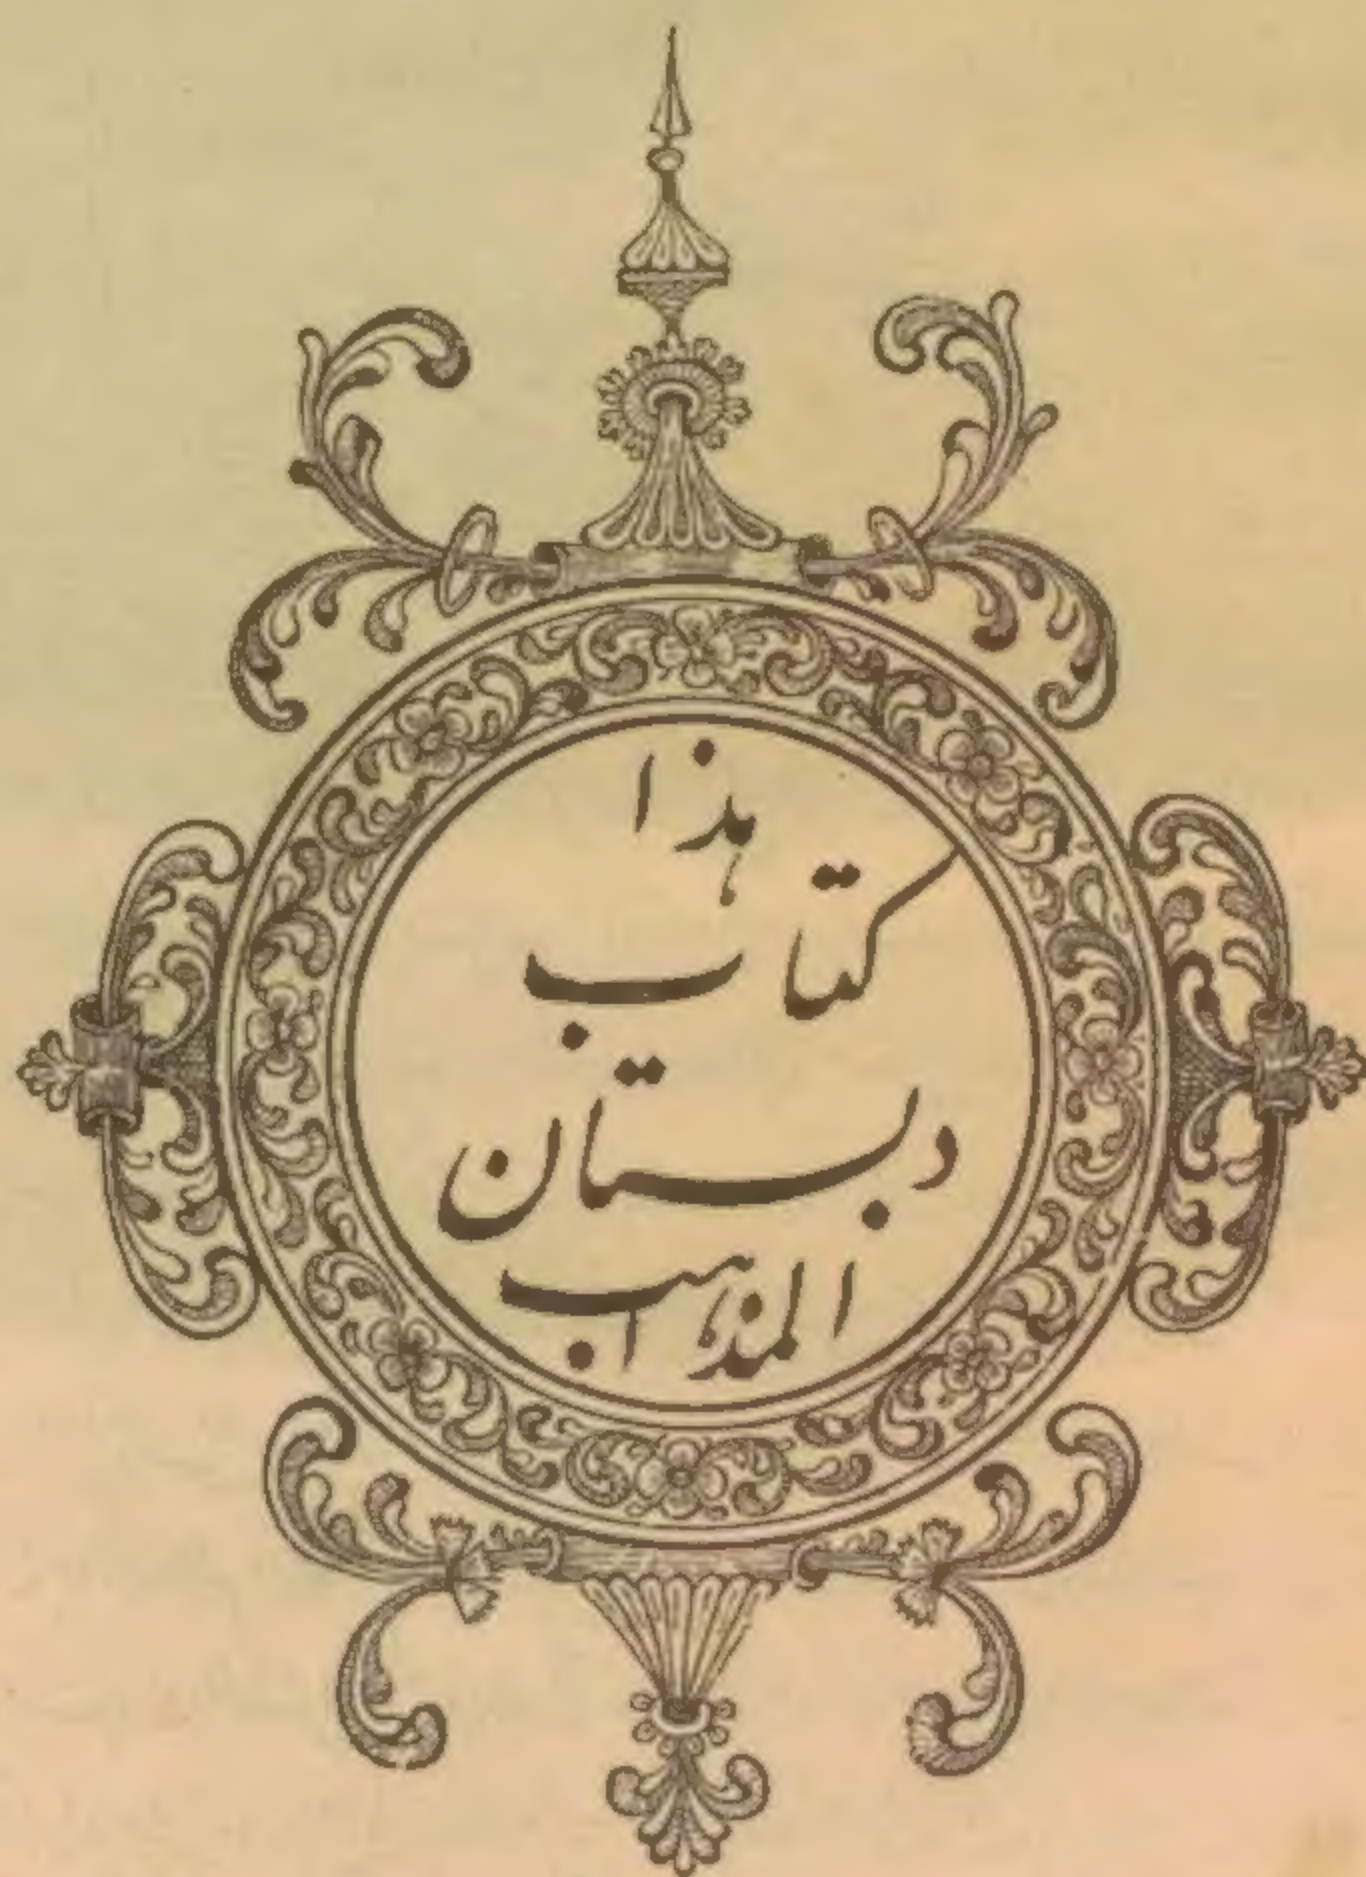 هذا
کتاب
دبستان
المذاهب